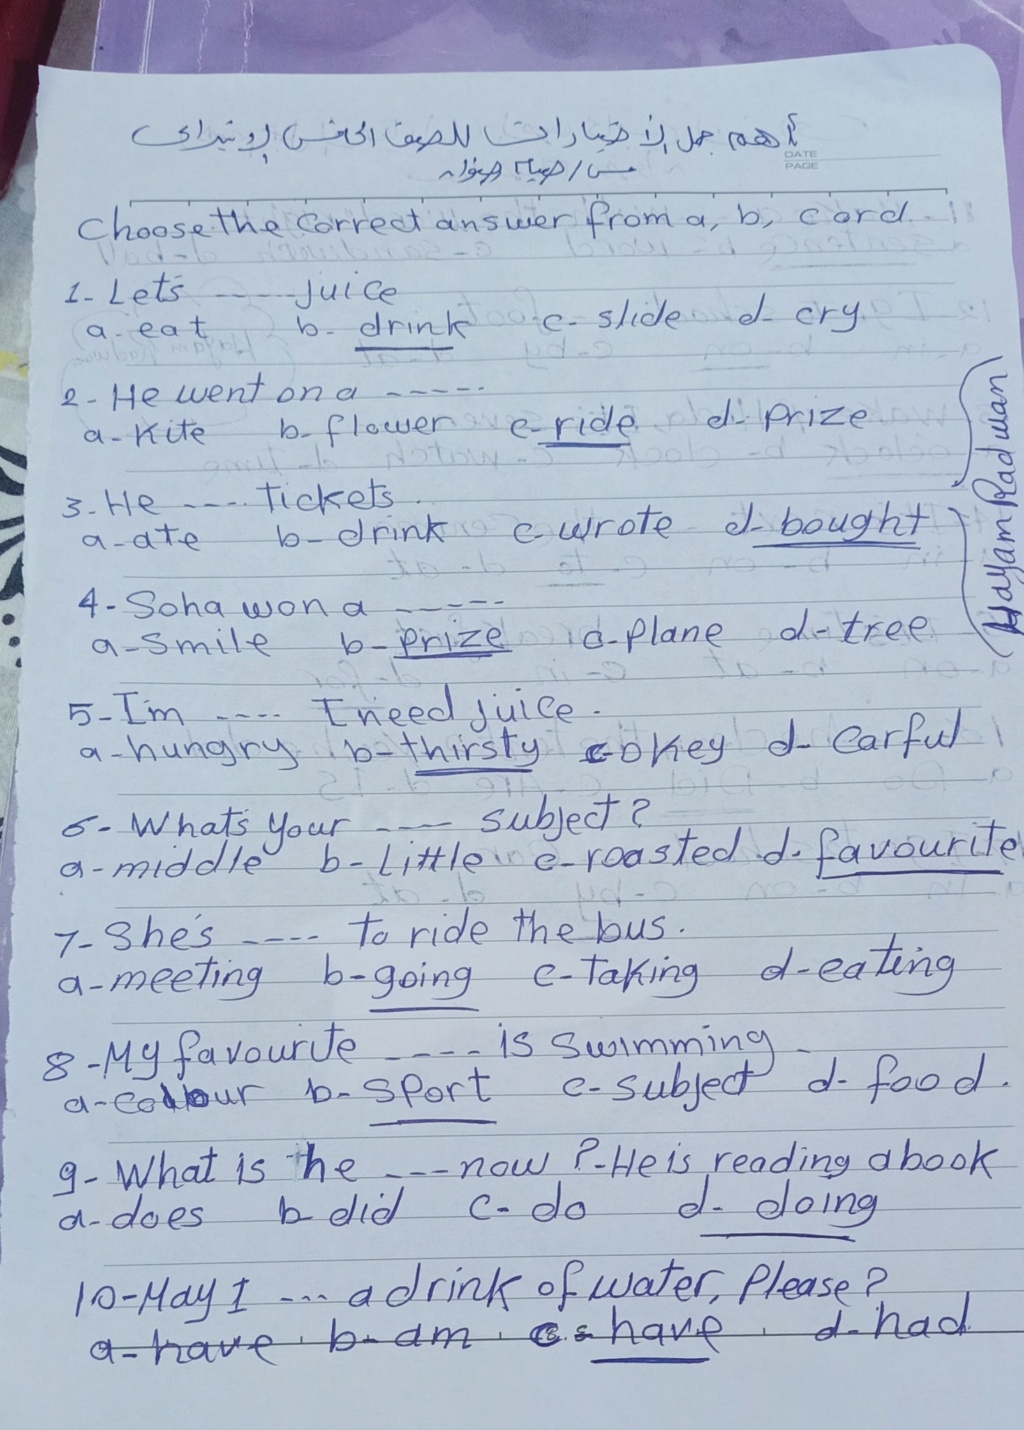 أهم جمل الاختيارات للصف الخامس الابتدائى
مس/هيام رضوان
DATE
PAGE
Choose the correct answer from a, b, c or d.
1- Let's ----- juice
a- eat b- drink c- slide d- cry
2- He went on a -----
a- Kite b- flower c- ride d- prize
3- He ---- tickets.
a- ate b- drink c- wrote d- bought
4- Soha won a -----
a- smile b- prize c- plane d- tree
5- I'm ---- I need juice.
a- hungry b- thirsty c- okey d- carful
6- What's your ---- subject?
a- middle b- little c- roasted d- favourite
7- She's ---- to ride the bus.
a- meeting b- going c- taking d- eating
8- My favourite ---- is swimming
a- colour b- sport c- subject d- food.
9- What is he --- now ?- He is reading a book
a- does b- did c- do d- doing
10- May I --- a drink of water, please?
a- have b- am c- have d- had
Hayam Radwan